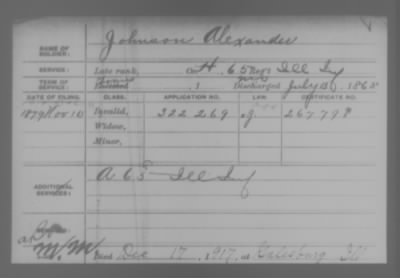 NAME OF SOLDIER: Johnson Alexander
SERVICE: Late rank, Co. H, 65 Reg't Ill Inf
TERM OF SERVICE: Enlisted , 1 Discharged July 13, 1865
DATE OF FILING. CLASS. APPLICATION NO. LAW. CERTIFICATE NO.
1879 Nov 10 Invalid, 322269 267798
Widow,
Minor,
ADDITIONAL SERVICES: A 65 Ill Inf
REMARKS:
Died Dec 17, 1917, at Galesburg Ill